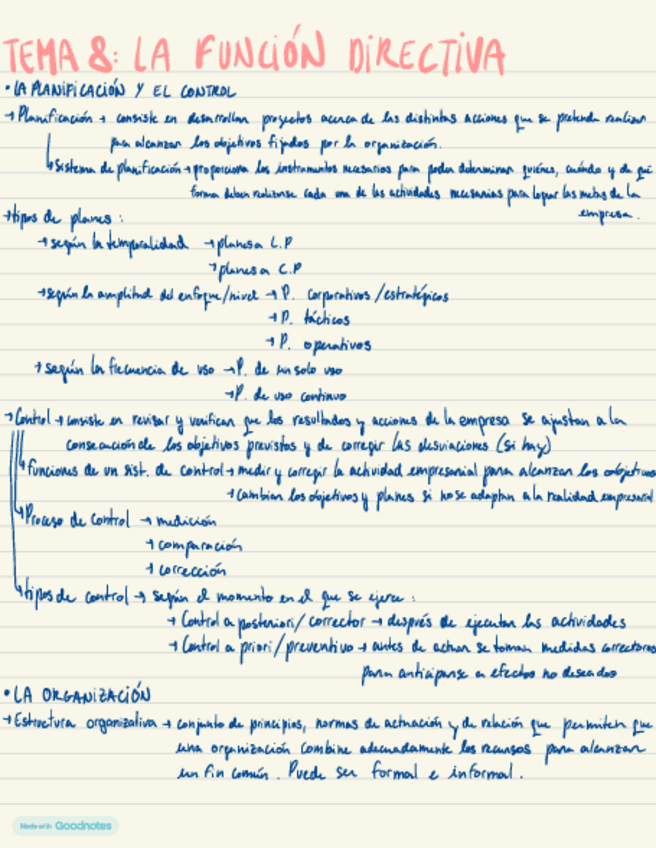 TEMA 8: LA FUNCIÓN DIRECTIVA
• LA PLANIFICACIÓN Y EL CONTROL
→ Planificación → consiste en desarrollar proyectos acerca de las distintas acciones que se pretende realizar
para alcanzar los objetivos fijados por la organización.
↳ Sistema de planificación → proporciona los instrumentos necesarios para poder determinar quiénes, cuándo y de qué
forma deben realizarse cada una de las actividades necesarias para lograr las metas de la
empresa.
→ tipos de planes:
→ según la temporalidad → planes a L.P
→ planes a C.P
→ según la amplitud del enfoque/nivel → P. corporativos/estratégicos
→ P. tácticos
→ P. operativos
→ según la frecuencia de uso → P. de un solo uso
→ P. de uso continuo
→ Control → consiste en revisar y verificar que los resultados y acciones de la empresa se ajustan a la
consecución de los objetivos previstos y de corregir las desviaciones (si hay)
↳ funciones de un sist. de control → medir y corregir la actividad empresarial para alcanzar los objetivos
→ cambiar los objetivos y planes si no se adaptan a la realidad empresarial
↳ Proceso de control → medición
→ comparación
→ corrección
↳ tipos de control → según el momento en el que se ejerce:
→ Control a posteriori/corrector → después de ejecutar las actividades
→ Control a priori/preventivo → antes de actuar se toman medidas correctoras
para anticiparse a efectos no deseados
• LA ORGANIZACIÓN
→ Estructura organizativa → conjunto de principios, normas de actuación y de relación que permiten que
una organización combine adecuadamente los recursos para alcanzar
un fin común. Puede ser formal e informal.
Made with Goodnotes